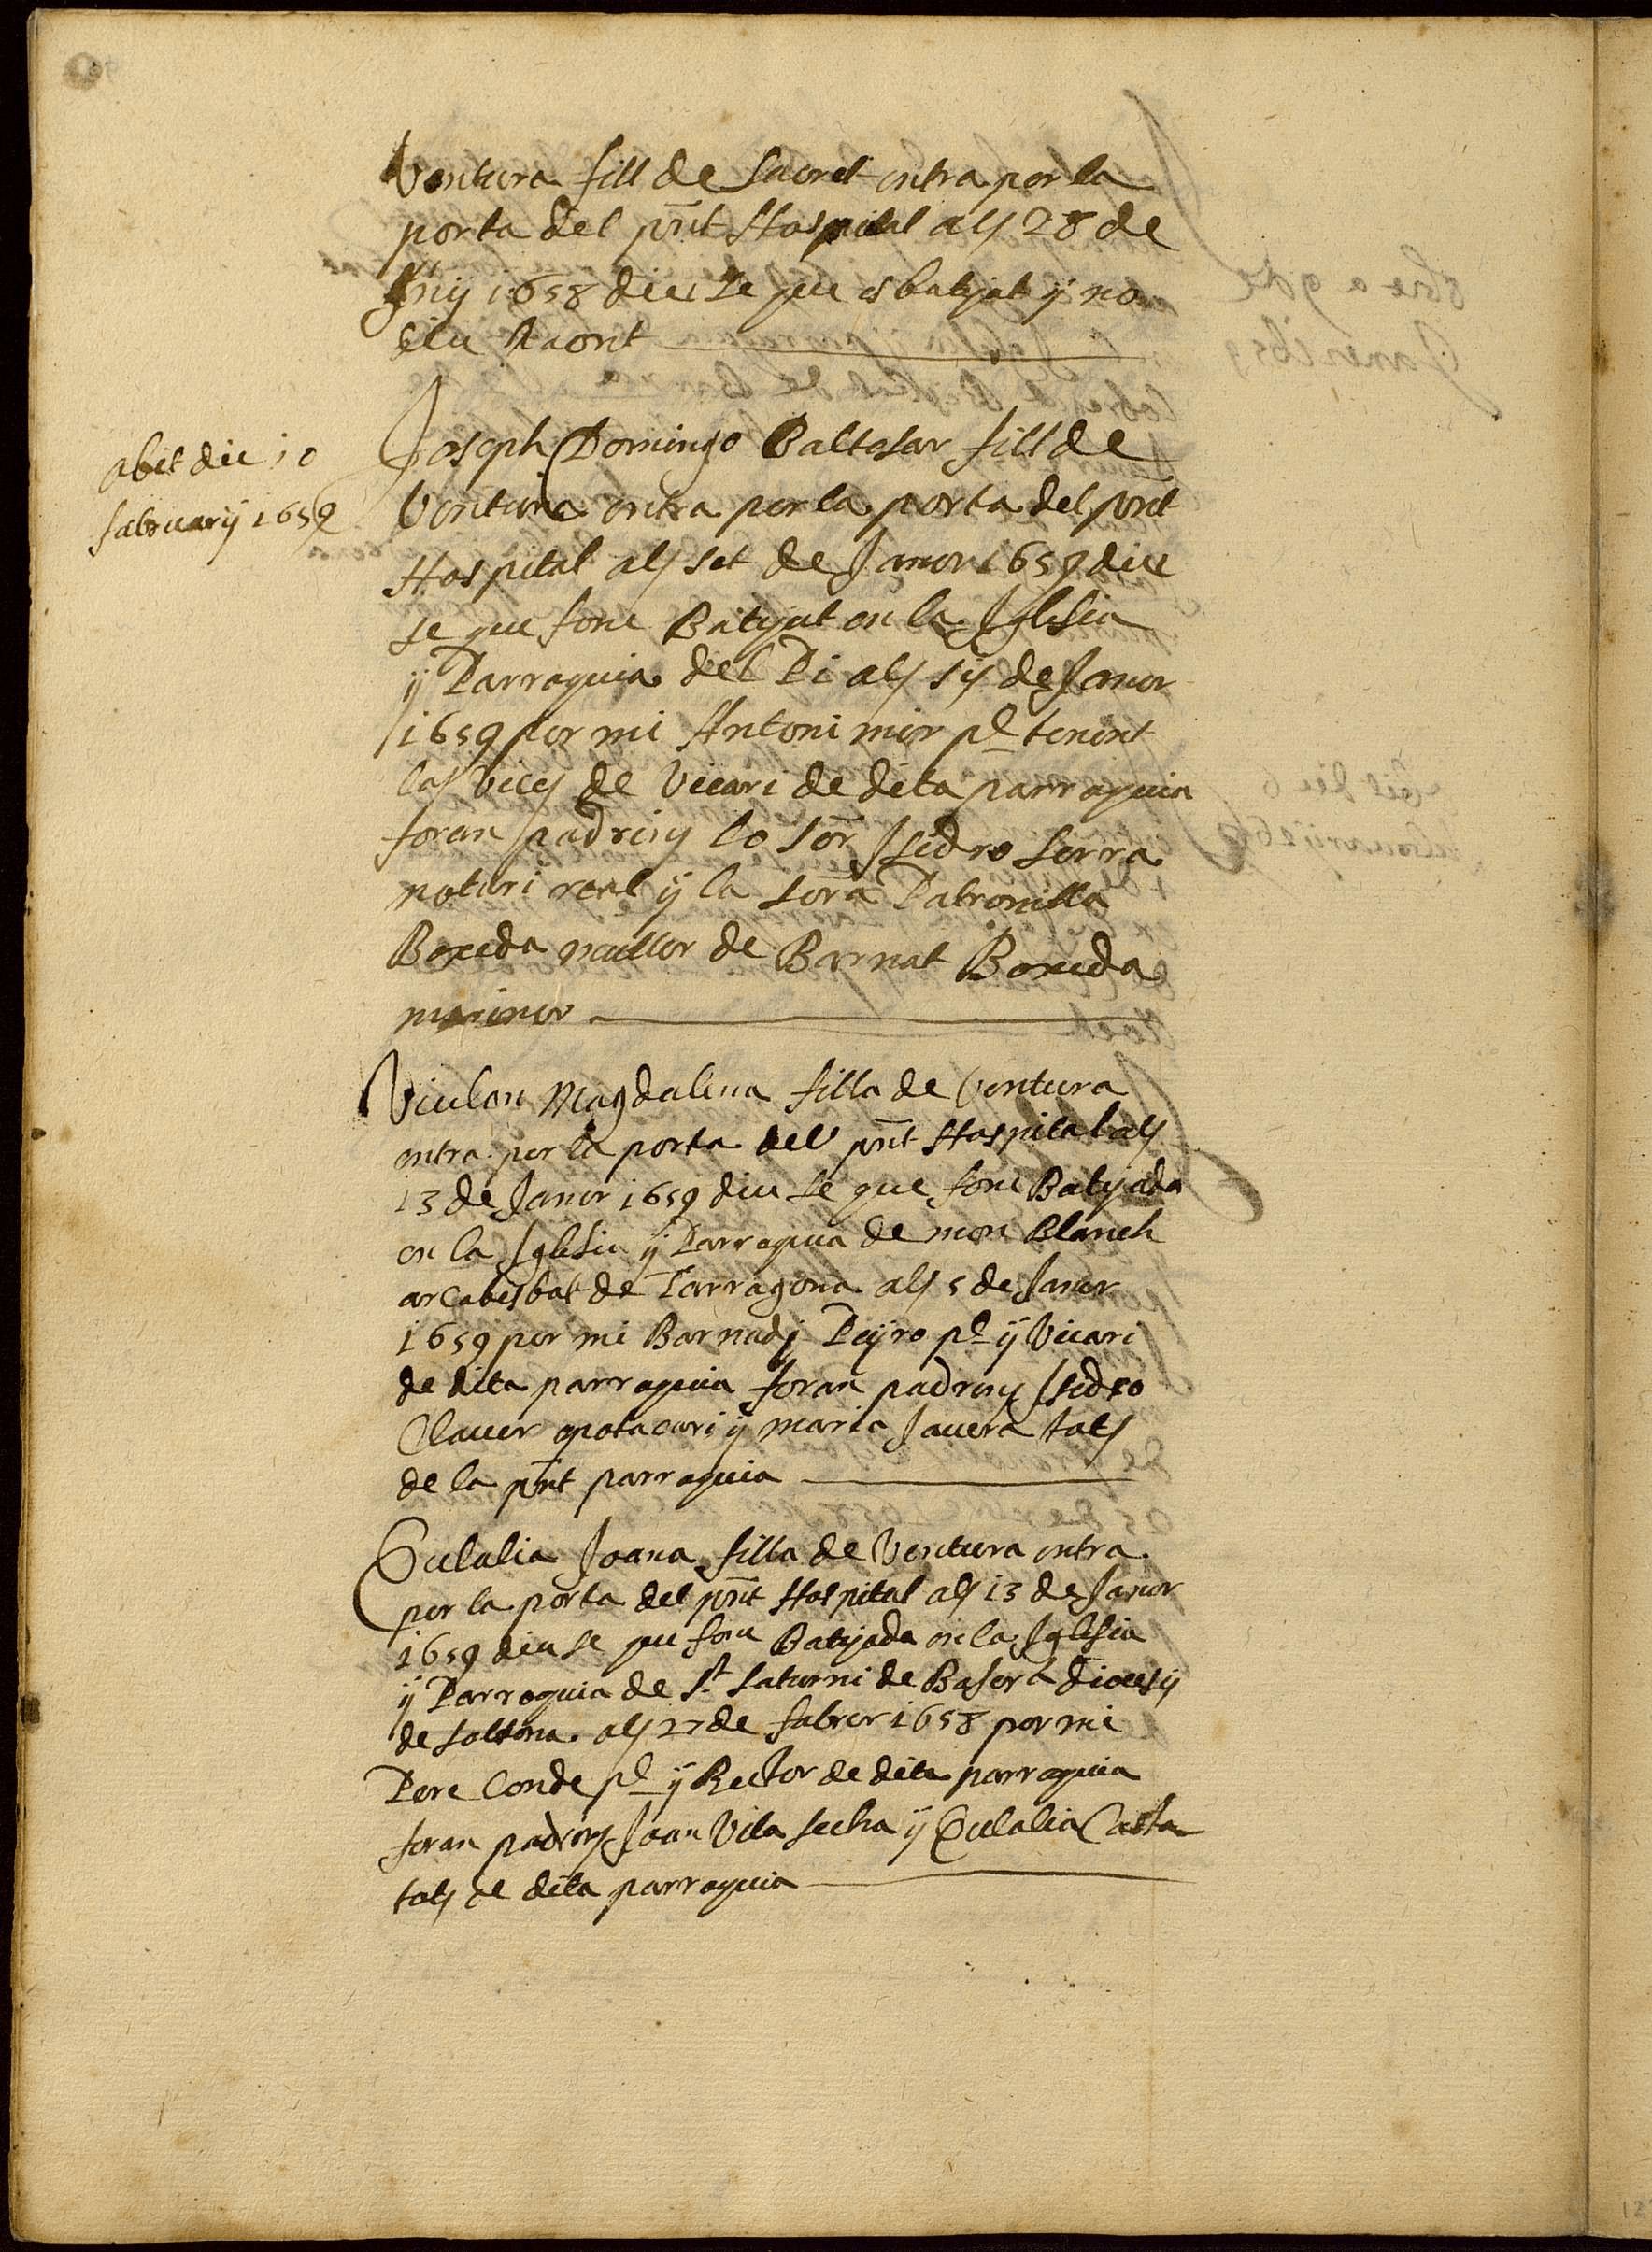 Ventura fill de Sacret entra per la
porta del pnt Hospital als 28 de
Juny 1658 diu se que es batejat y no
diu
abit die 10
fabruarij 1659
Joseph Domingo Baltesar fill de
Ventura entra per la porta del pnt
Hospital als set de Janer 1659 diu
se que fonc Batejat en la Iglesia
y Parroquia del Pi als sis de Janer
1659 per mi Antoni mir pe tenint
las vices de Vicari de dita parroquia
foran padrins lo Sor Isidro Serra
notari real y la Sora Patronilla
Boneda muller de Barnat Boneda
mariner
Viulan Magdalena filla de Ventura
entra per la porta del pnt Hospital als
13 de Janer 1659 diu se que fonc Batejada
en la Iglesia y Parroquia de mon Blanch
arcabisbat de Tarragona als 5 de Janer
1659 per mi Barnadi Peyro pe y Vicari
de dita parroquia foran padrins Isidro
Claver apotacari y maria Javera tots
de la pnt parroquia
Eulalia Joana filla de Ventura entra
per la porta del pnt Hospital als 13 de Janer
1659 diu se que fonc Batejada en la Iglesia
y Parroquia de St Saturni de Basora diocesis
de Solsona als 27 de fabrer 1658 per mi
Pere Conde pe y Rector de dita parroquia
foran padrins Joan Vila secha y Eulalia Casta
tots de dita parroquia